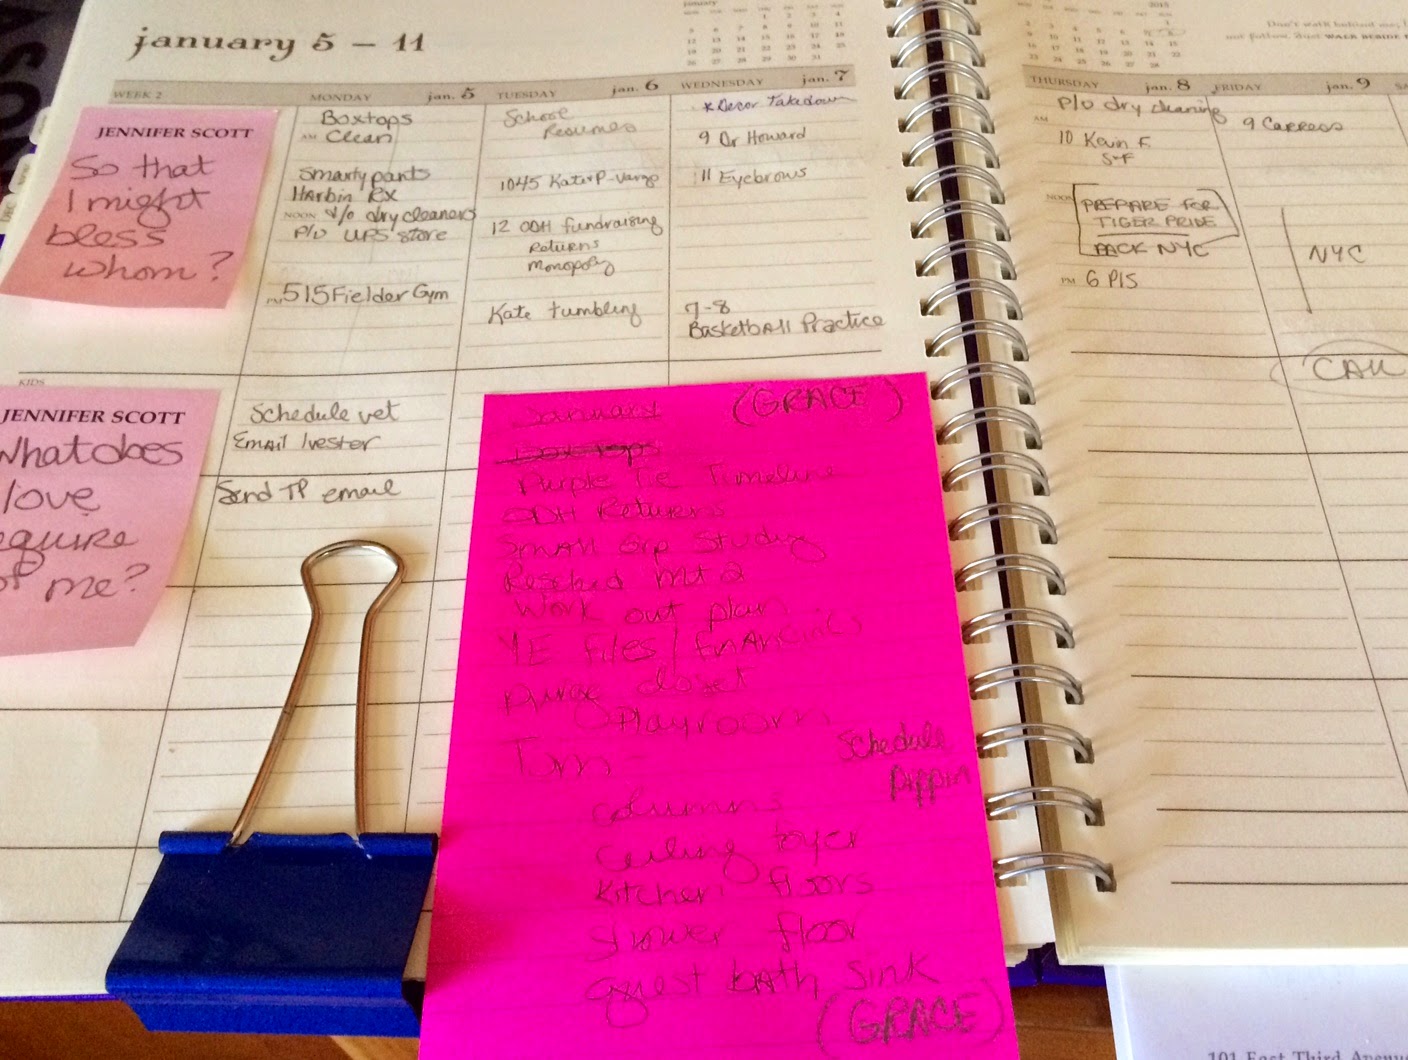 january 5 – 11
january
2015
WEEK 2
MONDAY jan. 5
TUESDAY jan. 6
WEDNESDAY jan. 7
THURSDAY jan. 8
FRIDAY jan. 9
JENNIFER SCOTT
So that
I might
bless
whom?
Boxtops
AM Clean
Smartypants
Harbin RX
NOON d/o dry cleaners
P/U UPS store
PM 515 Fielder Gym
School
Resumes
1045 Kater P-Vargo
12 ODH fundraising
Returns
Monopoly
Kate tumbling
*Decor Takedown
9 Dr Howard
11 Eyebrows
7-8
Basketball Practice
P/U dry cleaning
AM
10 Kevin F.
NOON
PREPARE FOR
TIGER PRIDE
PACK NYC
PM 6 PIS
9 Careers
NYC
CALL
KIDS
JENNIFER SCOTT
What does
love
equire
of me?
Schedule vet
Email Ivester
Send TP email
January (GRACE)
Boxtops
Purple T.E Timeline
ODH Returns
Small Grp Studies
Resched Mt 2
Work out plan
YE files/financials
purge closet
Playroom
Tim-
Schedule
pippin
columns
ceiling foyer
Kitchen floors
shower floor
guest bath sink
(GRACE)
101 East Third Avenue